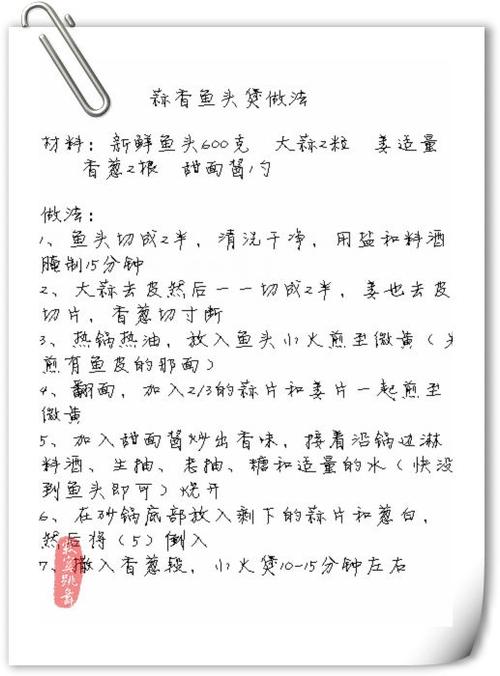 蒜香鱼头煲做法
材料：新鲜鱼头600克 大蒜2粒 姜适量
香葱2根 甜面酱1勺
做法：
1、鱼头切成2半，清洗干净，用盐和料酒
腌制15分钟
2、大蒜去皮然后一一切成2半，姜也去皮
切片，香葱切寸断
3、热锅热油，放入鱼头小火煎至微黄（先
煎有鱼皮的那面）
4、翻面，加入2/3的蒜片和姜片一起煎至
微黄
5、加入甜面酱炒出香味，接着沿锅边淋
料酒、生抽、老抽、糖和适量的水（快没
到鱼头即可）烧开
6、在砂锅底部放入剩下的蒜片和葱白，
然后将（5）倒入
7、撒入香葱段，小火煲10-15分钟左右